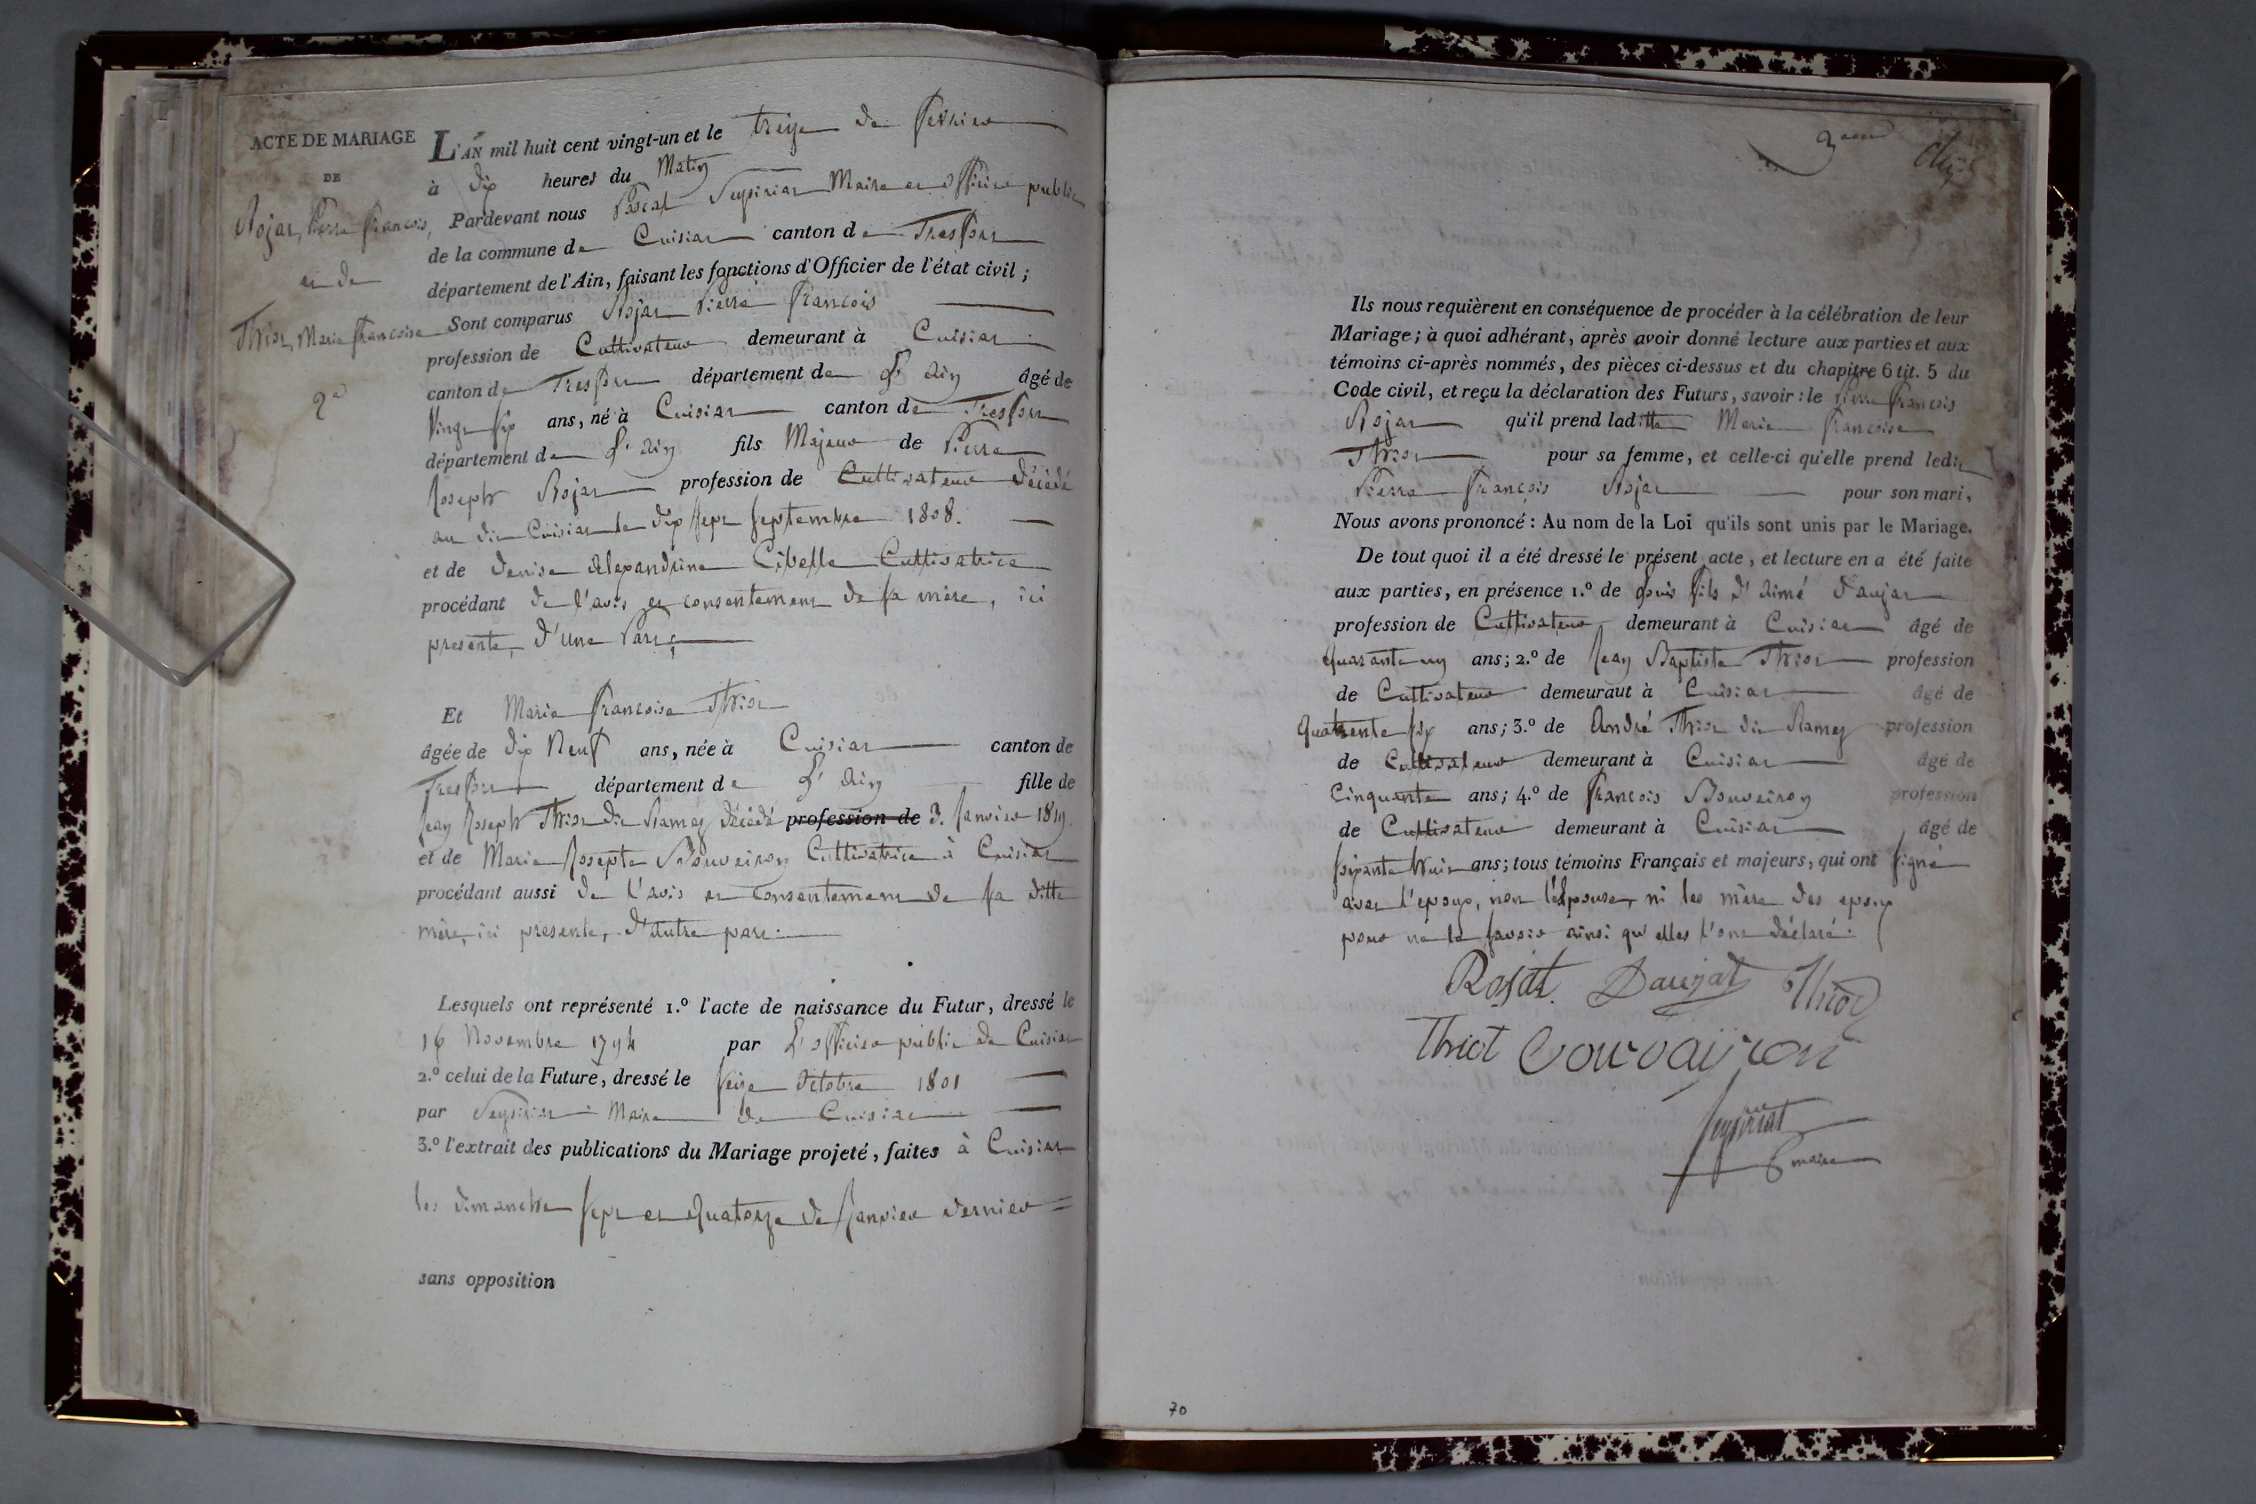 ACTE DE MARIAGE
DE
Rojat, Pierre François,
et de
Thiot, Marie Françoise
2e
L'AN mil huit cent vingt-un et le treize de fevrier
à dix heures du Matin
Pardevant nous Pascal Seysiriat Maire et officier public
de la commune de Cuisiat canton de Treffort
département de l'Ain, faisant les fonctions d'Officier de l'état civil ;
Sont comparus Rojat Pierre François
profession de Cultivateur demeurant à Cuisiat
canton de Treffort département de L'ain âgé de
Vingt six ans, né à Cuisiat canton de Treffort
département de L'ain fils Majeur de Pierre
Joseph Rojat profession de Cultivateur décédé
au dit Cuisiat le dix sept septembre 1808.
et de denise alexandrine Cibelle Cultivatrice
procédant de l'avis et consentement de sa mère, ici
presente, d'une Part ;
Et Marie françoise Thiot
âgée de dix Neuf ans, née à Cuisiat canton de
Treffort département de L'ain fille de
Jean Joseph Thiot dit Ramey décédé profession de 3. Janvier 1819
et de Marie Josepte Bouveiron Cultivatrice à Cuisiat
procédant aussi de l'avis et consentement de sa ditte
mère, ici presente, d'autre part.
Lesquels ont représenté 1.º l'acte de naissance du Futur, dressé le
16 Novembre 1794 par L'officier public de Cuisiat
2.º celui de la Future, dressé le seize octobre 1801
par Seysiriat Maire de Cuisiat
3.º l'extrait des publications du Mariage projeté, faites à Cuisiat
les dimanche sept et quatorze de Janvier dernier
sans opposition
Ils nous requièrent en conséquence de procéder à la célébration de leur
Mariage ; à quoi adhérant, après avoir donné lecture aux parties et aux
témoins ci-après nommés, des pièces ci-dessus et du chapitre 6 tit. 5 du
Code civil, et reçu la déclaration des Futurs, savoir : le Pierre françois
Rojat qu'il prend laditte Marie françoise
Thiot pour sa femme, et celle-ci qu'elle prend ledit
Pierre François Rojat pour son mari,
Nous avons prononcé : Au nom de la Loi qu'ils sont unis par le Mariage.
De tout quoi il a été dressé le présent acte, et lecture en a été faite
aux parties, en présence 1.º de Louis fils d'aimé daujat
profession de Cultivateur demeurant à Cuisiat âgé de
quarante un ans ; 2.º de Jean Baptiste Thiot profession
de Cultivateur demeuraut à Cuisiat âgé de
quarente six ans ; 3.º de André Thiot dit Ramey profession
de Cultivateur demeurant à Cuisiat âgé de
Cinquante ans ; 4.º de françois Bouveiron profession
de Cultivateur demeurant à Cuisiat âgé de
soixante huit ans ; tous témoins Français et majeurs, qui ont signé
avec l'epoux, non l'épouse, ni les mère des epoux
pour ne le savoir ainsi qu'elles l'ont déclaré.
Rojat Daujat Thiot
Thiot Bouvairon
Seysiriat
maire
70